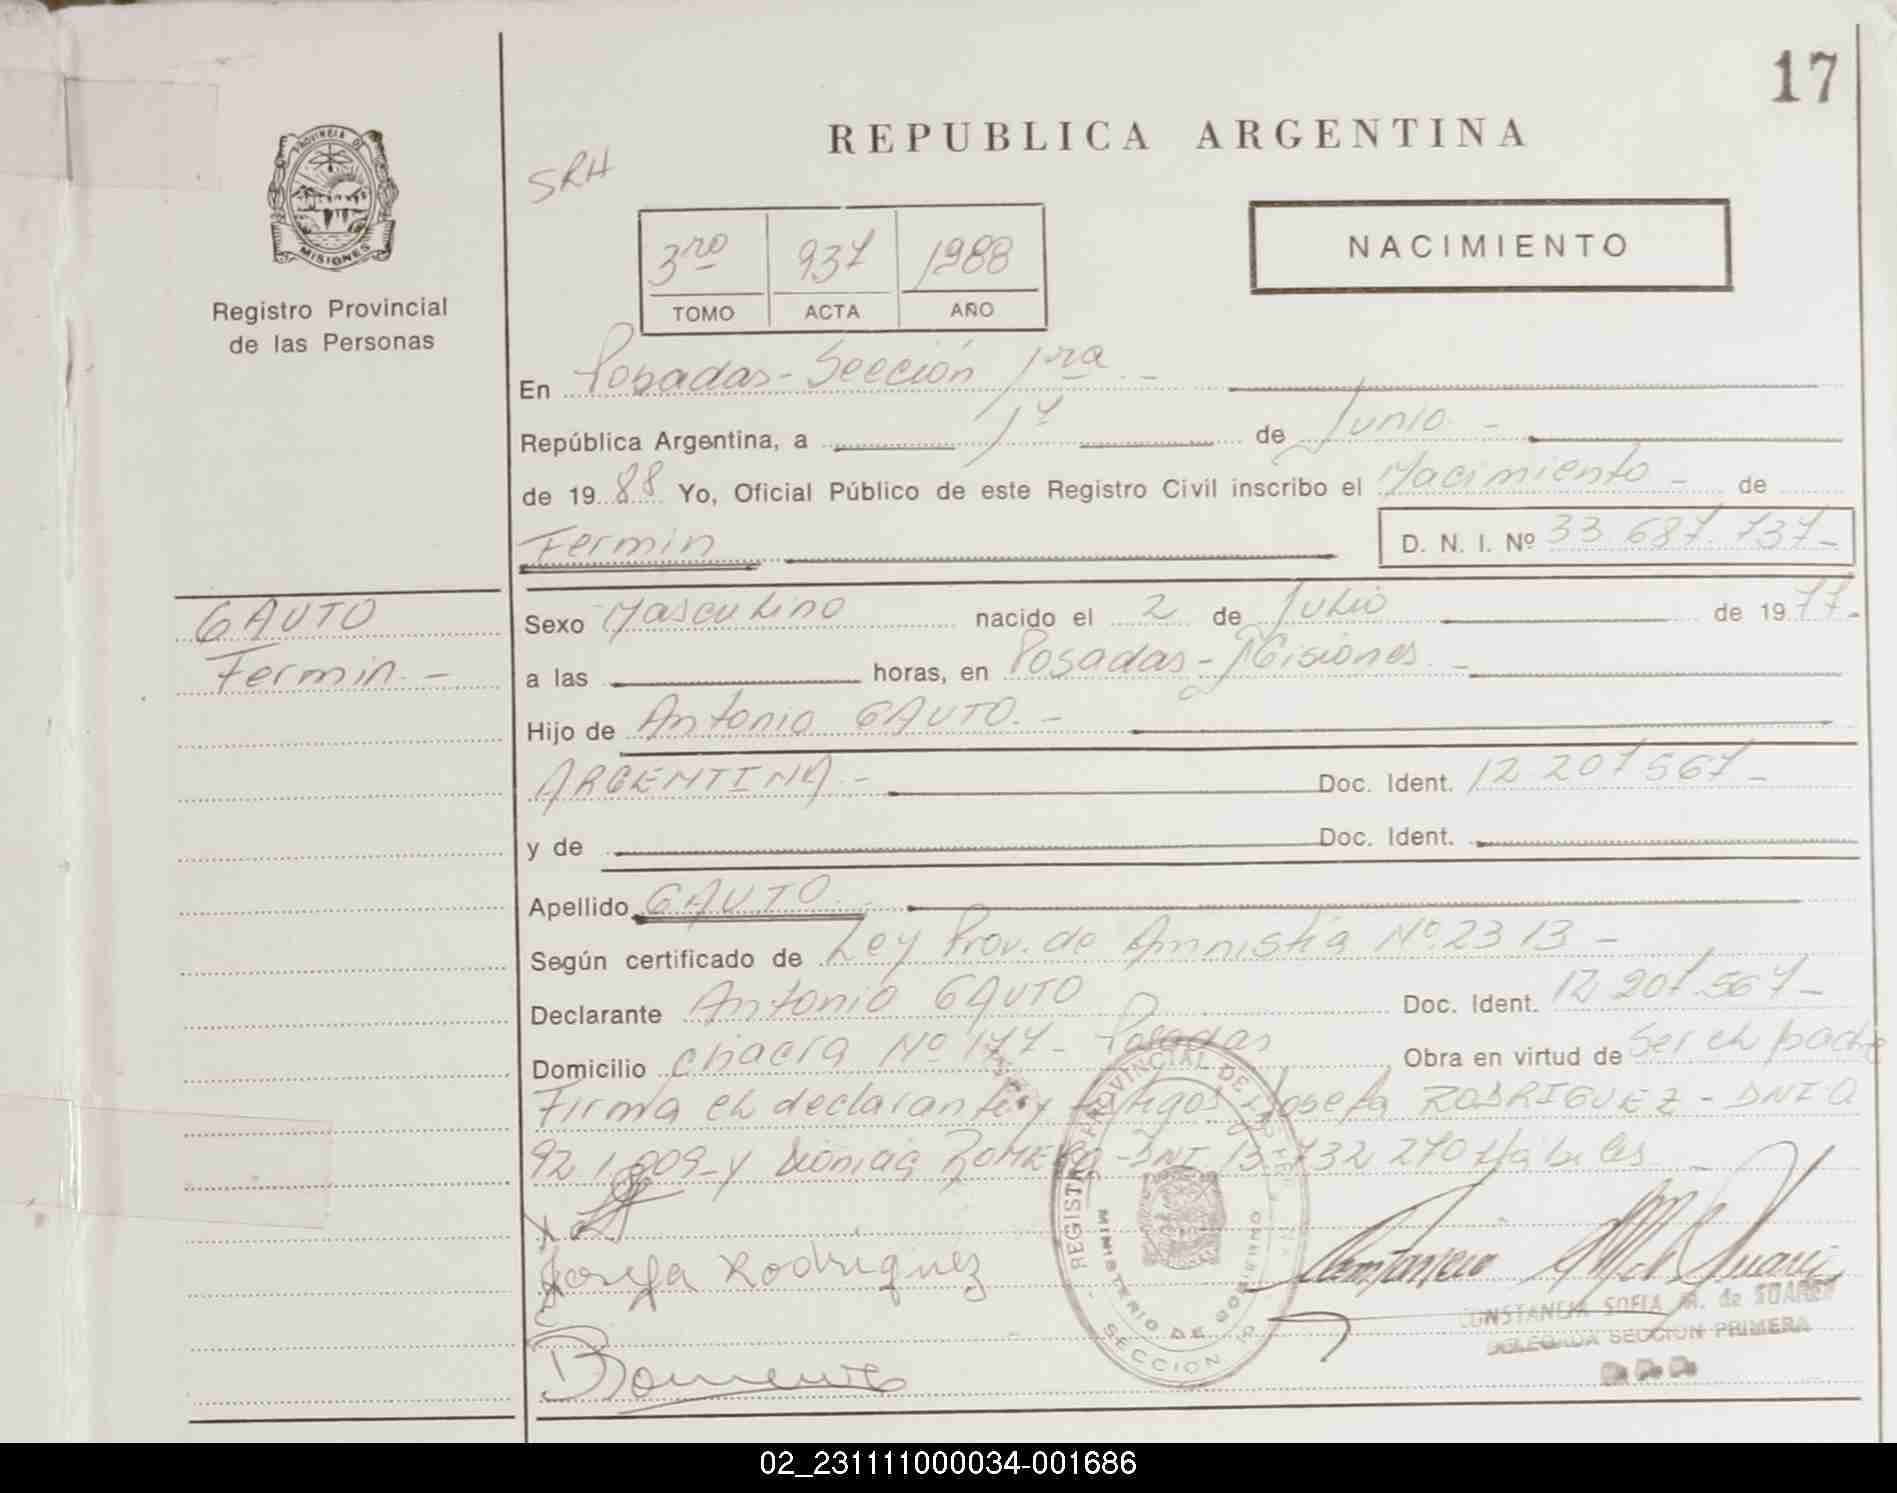 17
REPUBLICA ARGENTINA
SRH
PROVINCIA DE
MISIONES
Registro Provincial
de las Personas
3ro 937 1988
TOMO ACTA AÑO
NACIMIENTO
En Posadas - Sección 1ra -
República Argentina, a 17 de Junio -
de 1988 Yo, Oficial Público de este Registro Civil inscribo el Nacimiento - de
Fermin
D. N. I. Nº 33 687.737-
GAUTO
Fermin. -
Sexo Masculino nacido el 2 de Julio de 1977-
a las horas, en Posadas - Misiones -
Hijo de Antonio GAUTO. -
ARGENTINA - Doc. Ident. 12 207 567-
y de Doc. Ident.
Apellido GAUTO
Según certificado de Ley Prov. de Amnistia Nº 2313 -
Declarante Antonio GAUTO Doc. Ident. 12 207.567-
Domicilio chacra Nº 177- Posadas Obra en virtud de ser el padre
Firma el declarante y testigos Josefa RODRIGUEZ - DNI
921.009-y ROMERO - DNI 13.732 270 Hábiles -
Josefa Rodriguez
REGISTRO PROVINCIAL DE LAS PERSONAS
MINISTERIO DE GOBIERNO
SECCION 1º
CONSTANCIA SOFIA M. de SUAREZ
DELEGADA SECCION PRIMERA
02_231111000034-001686